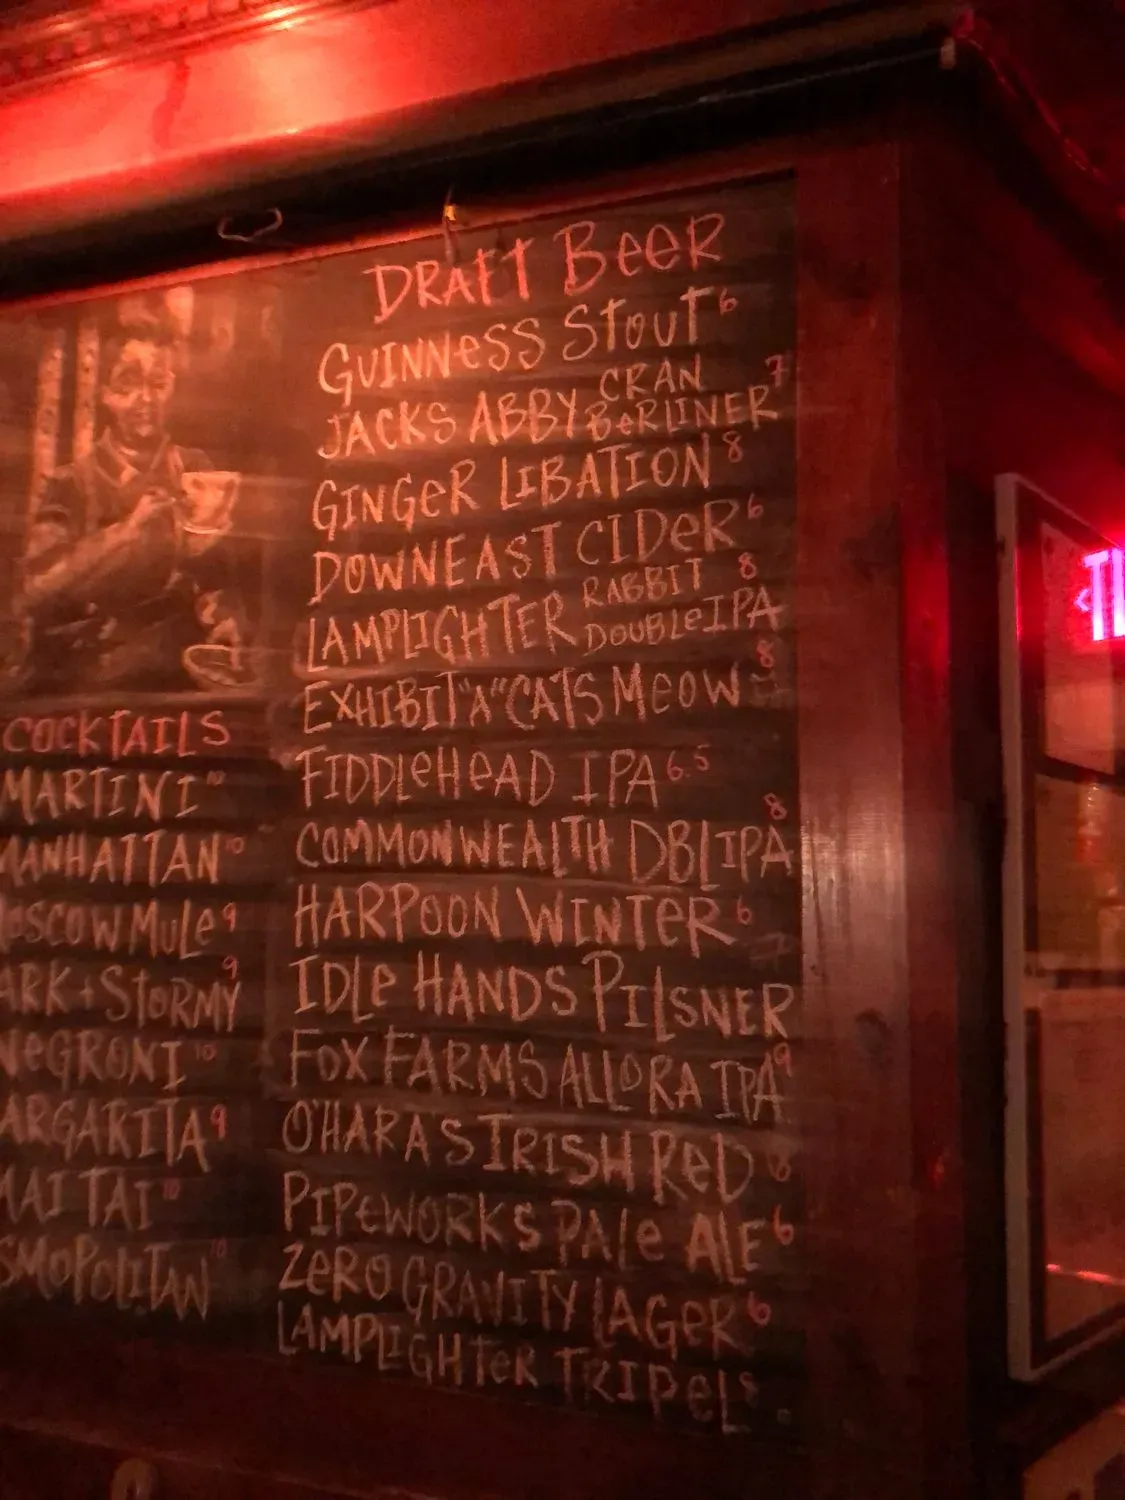 DRAFT BeeR
GUINNeSS StouT 6
JACKS ABBY CRAN BeRLINER 7
GINGeR LIBATION 8
DOWNEAST CIDeR 6
LAMPLIGHTER RABBIT DOUBLeIPA 8
EXHIBIT "A" CATS MeoW 8
FIDDLeHeAD IPA 6.5
COMMONWEALTH DBL IPA 8
HARPOON WINTeR 6
IDLe HANDS PILSNER 7
FOX FARMS ALLORA IPA 9
O'HARA'S IRISH ReD 6
PIPeWORKS PALe ALE 6
ZeRO GRAVITY LAGeR 6
LAMPLIGHTeR TRIPeL
COCKTAILS
MARTINI 10
MANHATTAN 10
MOSCOW MuLe 9
ARK + SToRMY 9
NeGRONI 10
ARGARITA 9
MAI TAI 10
SMOPOLITAN 10